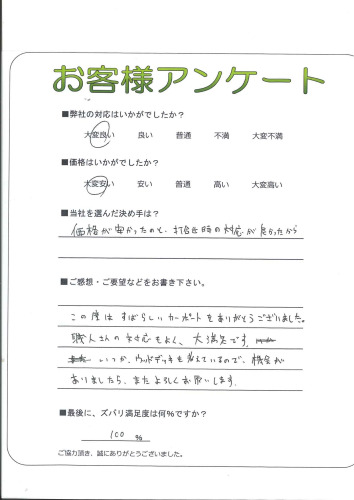 お客様アンケート
■弊社の対応はいかがでしたか？
大変良い 良い 普通 不満 大変不満
■価格はいかがでしたか？
大変安い 安い 普通 高い 大変高い
■当社を選んだ決め手は？
価格が安かったのと、打合せ時の対応が良かったから
■ご感想・ご要望などをお書き下さい。
この度はすばらしいカーポートをありがとうございました。
職人さんの対応もよく、大満足です。
いつか、ウッドデッキも考えているので、機会が
ありましたら、またよろしくお願いします。
■最後に、ズバリ満足度は何％ですか？
100 %
ご協力頂き、誠にありがとうございました。